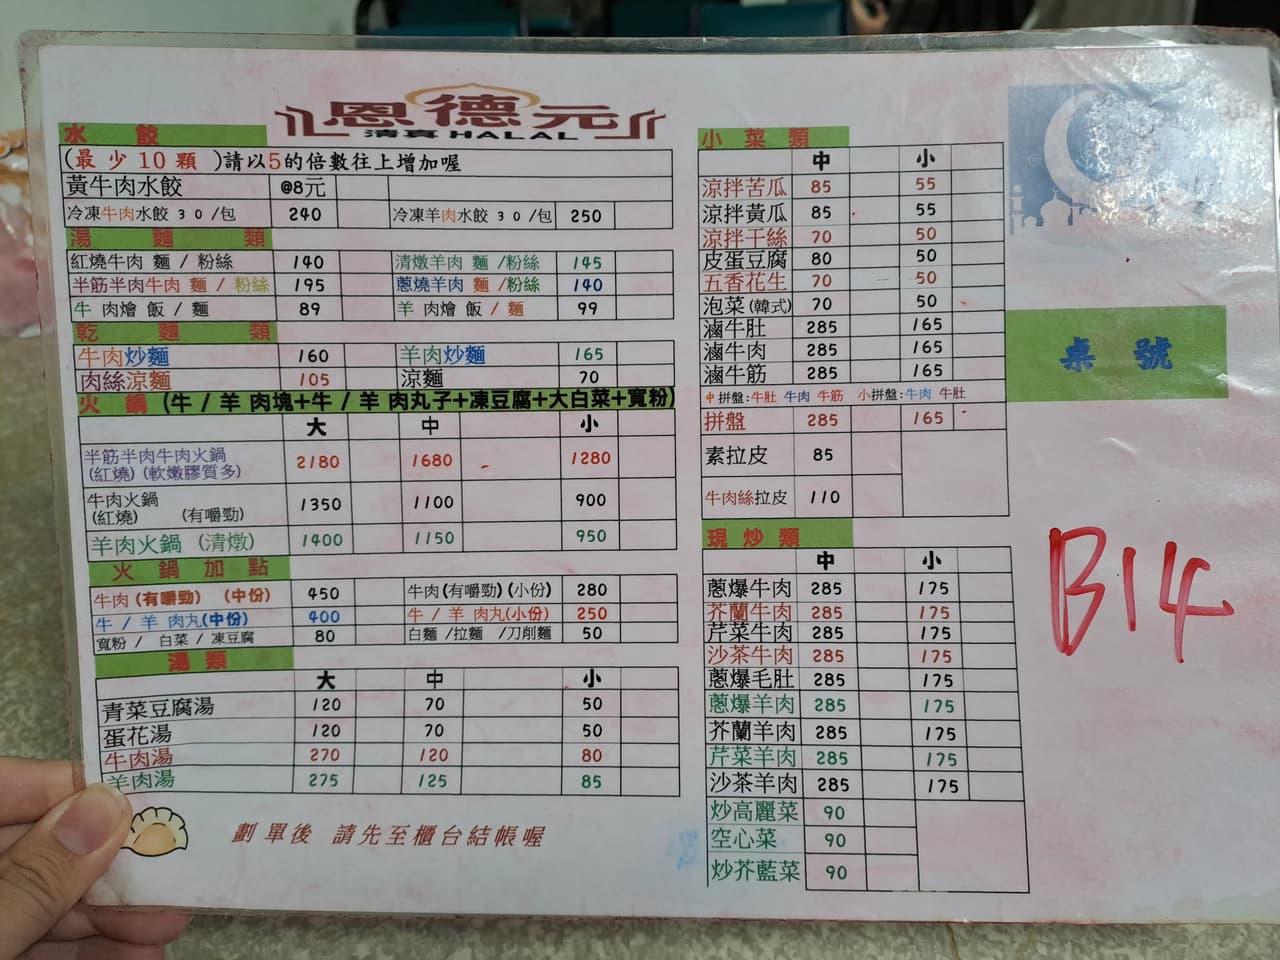 恩德元
清真 HALAL
水餃
(最少10顆)請以5的倍數往上增加喔
黃牛肉水餃 @8元
冷凍牛肉水餃 30/包 240 冷凍羊肉水餃 30/包 250
湯麵類
紅燒牛肉 麵 / 粉絲 140 清燉羊肉 麵 /粉絲 145
半筋半肉牛肉 麵 / 粉絲 195 蔥燒羊肉 麵 /粉絲 140
牛 肉燴 飯 / 麵 89 羊 肉燴 飯 / 麵 99
乾麵類
牛肉炒麵 160 羊肉炒麵 165
肉絲涼麵 105 涼麵 70
火 鍋 (牛 / 羊 肉塊+牛 / 羊 肉丸子+凍豆腐+大白菜+寬粉)
大 中 小
半筋半肉牛肉火鍋 2180 1680 1280
(紅燒) (軟嫩膠質多)
牛肉火鍋 1350 1100 900
(紅燒) (有嚼勁)
羊肉火鍋 (清燉) 1400 1150 950
火鍋加點
牛肉 (有嚼勁) (中份) 450 牛肉(有嚼勁)(小份) 280
牛 / 羊 肉丸(中份) 400 牛 / 羊 肉丸(小份) 250
寬粉 / 白菜 / 凍豆腐 80 白麵 /拉麵 /刀削麵 50
湯類
大 中 小
青菜豆腐湯 120 70 50
蛋花湯 120 70 50
牛肉湯 270 120 80
羊肉湯 275 125 85
劃單後 請先至櫃台結帳喔
小菜類
中 小
涼拌苦瓜 85 55
涼拌黃瓜 85 55
涼拌干絲 70 50
皮蛋豆腐 80 50
五香花生 70 50
泡菜(韓式) 70 50
滷牛肚 285 165
滷牛肉 285 165
滷牛筋 285 165
中拼盤:牛肚 牛肉 牛筋 小拼盤:牛肉 牛肚
拼盤 285 165
素拉皮 85
牛肉絲拉皮 110
現炒類
中 小
蔥爆牛肉 285 175
芥蘭牛肉 285 175
芹菜牛肉 285 175
沙茶牛肉 285 175
蔥爆毛肚 285 175
蔥爆羊肉 285 175
芥蘭羊肉 285 175
芹菜羊肉 285 175
沙茶羊肉 285 175
炒高麗菜 90
空心菜 90
炒芥藍菜 90
桌號
B14